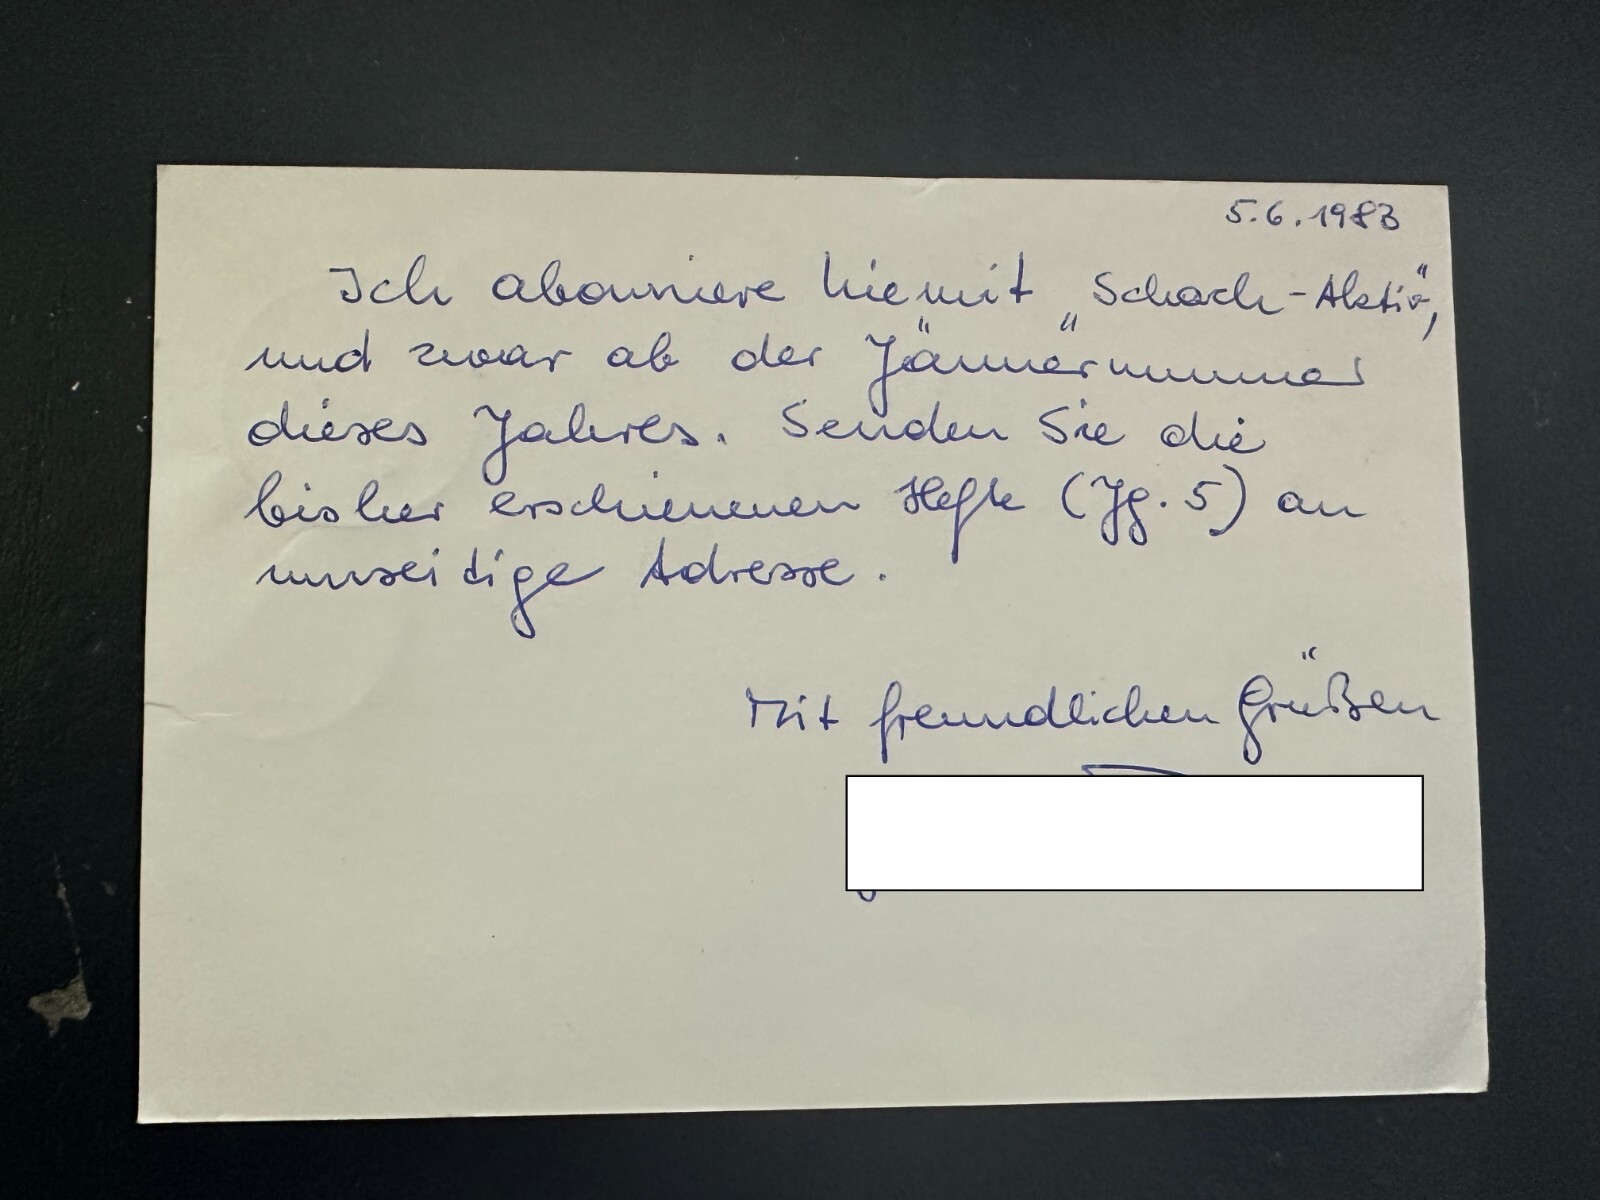 5.6.1983
Ich abonniere hiemit "Schach-Aktiv",
und zwar ab der Jännernummer
dieses Jahres. Senden Sie die
bisher erschienenen Hefte (Jg. 5) an
umseitige Adresse.
Mit freundlichen Grüßen